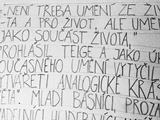 „NENÍ TŘEBA UMĚNÍ ZE ŽIV
TA A PRO ŽIVOT, ALE UMĚNÍ
JAKO SOUČÁST ŽIVOTA,"
PROHLÁSIL TEIGE A JAKO ÚK
SOUČASNÉHO UMĚNÍ VYTYČIL
TVÁŘETI ANALOGICKÉ KRÁ
MLADÍ BÁSNÍCI, PROZA